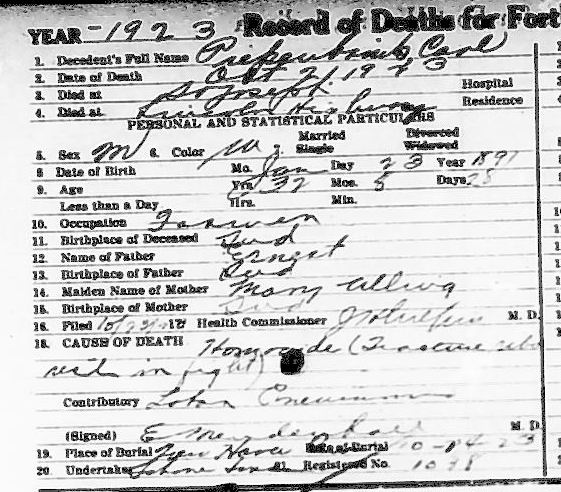 YEAR - 1923 Record of Deaths for Fort
1. Decedent's Full Name Piepenbrink Carl
2. Date of Death Oct 21, 1923
3. Died at St Joseph Hospital
4. Died at Lincoln Highway Residence
PERSONAL AND STATISTICAL PARTICULARS
5. Sex M 6. Color W 7. Married Single Divorced Widowed
8 Date of Birth Mo. Jan Day 23 Year 1891
9. Age Yrs. 32 Mos. Days 28
Less than a Day Hrs. Min.
10. Occupation Farmer
11. Birthplace of Deceased Ind
12. Name of Father Ernest
13. Birthplace of Father Ind
14. Maiden Name of Mother Mary
15. Birthplace of Mother Ind
16. Filed 10/23/ Health Commissioner M. D.
18. CAUSE OF DEATH Homocide (Fracture
in fight)
Contributory Lobar Pneumonia
(Signed) E M M. D.
19. Place of Burial New Haven Date of Burial 10-24-23
20. Undertaker 21. Registered No.